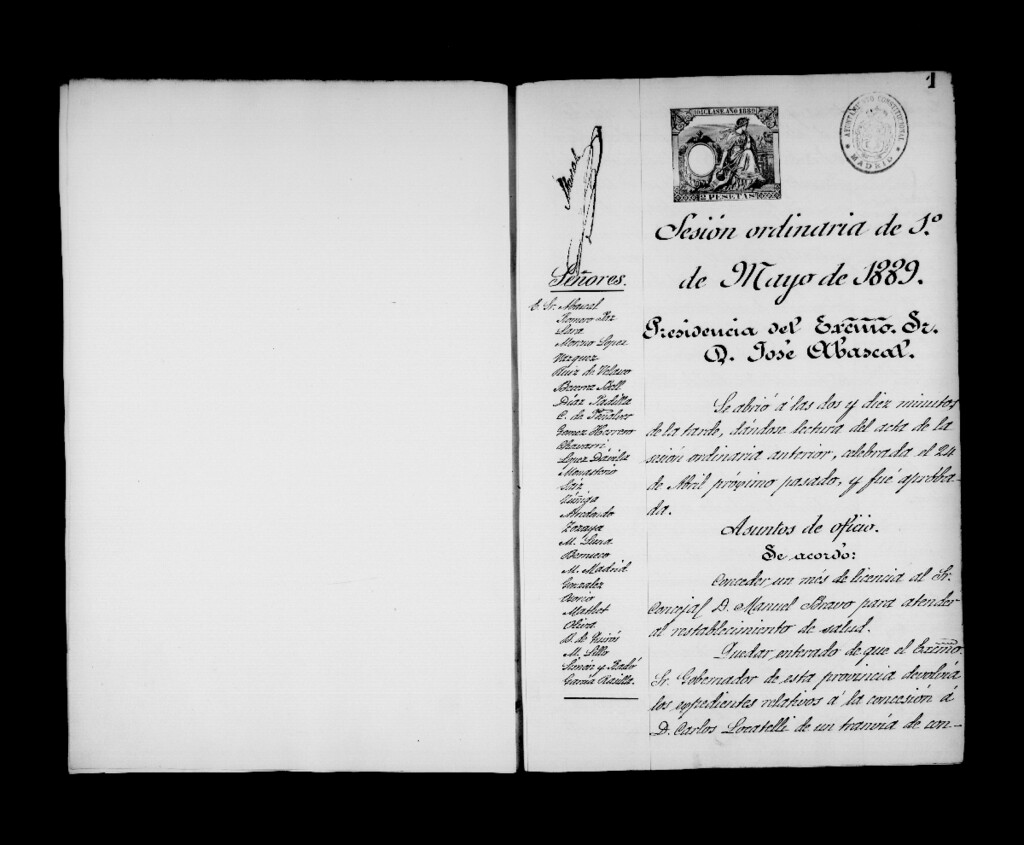 1
10ª CLASE. AÑO 1889
2 PESETAS
AYUNTAMIENTO CONSTITUCIONAL
MADRID
Sesión ordinaria de 1.º
de Mayo de 1889.
Presidencia del Excmo. Sr.
D. José Abascal.
Señores.
E. Sr. Abascal
Romero Paz
Lara
Moreno Lopez
Vazquez
Ruiz de Velasco
Díaz Padilla
C. de Peñalver
Gomez Herrero
Chavarri
Lopez Dávila
Monasterio
Saiz
Zúñiga
Zozaya
M. Luna
M. Madrid
Gonzalez
Osorio
Mathet
Oliva
B. de Quirós
Simón y Radó
García Rasilla.
Se abrió á las dos y diez minutos
de la tarde, dándose lectura del acta de la
sesion ordinaria anterior, celebrada el 24
de Abril próximo pasado, y fué aproba-
da.
Asuntos de oficio.
Se acordó:
Conceder un mes de licencia al Sr.
Concejal D. Manuel Bravo para atender
al restablecimiento de salud.
Quedar enterado de que el Excmo.
Sr. Gobernador de esta provincia devolvía
los expedientes relativos á la concesión á
D. Carlos Locatelli de un tranvía de con-